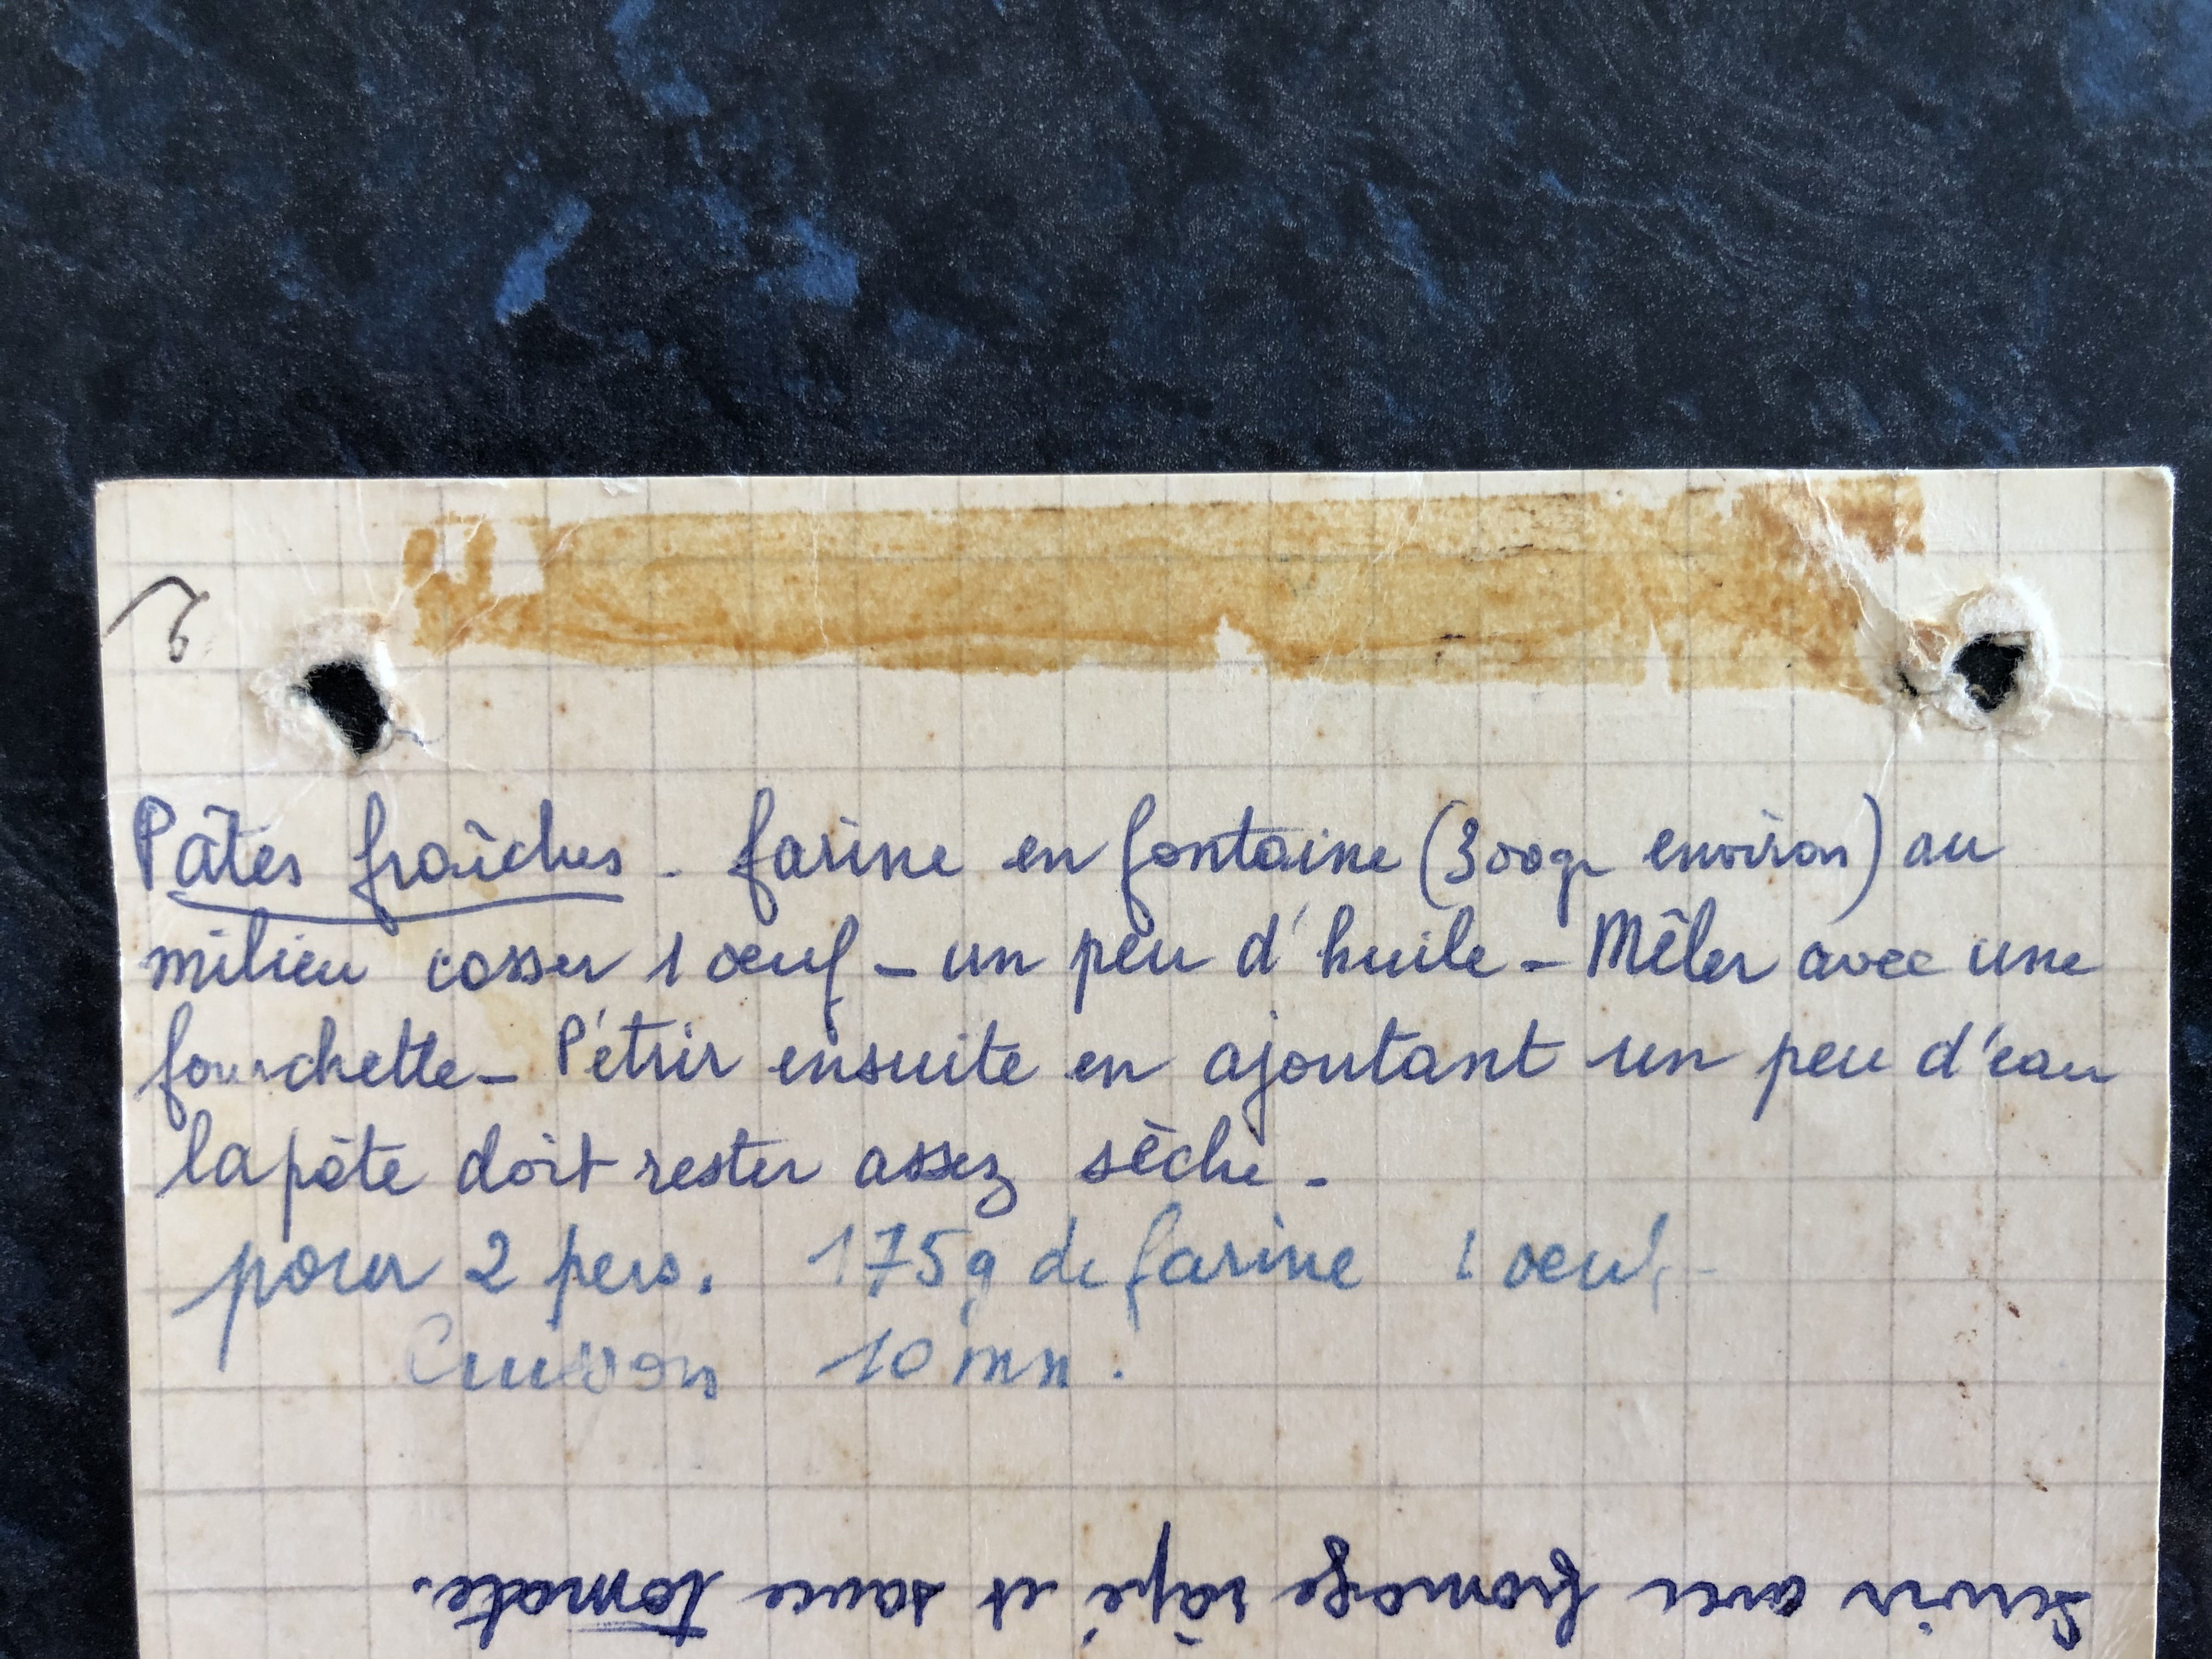 Pâtes fraîches - farine en fontaine (300gr environ) au
milieu casser 1 oeuf - un peu d'huile - Mêler avec une
fourchette - Pétrir ensuite en ajoutant un peu d'eau
la pâte doit rester assez sèche -
pour 2 pers. 175g de farine 1 oeuf -
Cuisson 10 mn.
Servir avec fromage râpé et sauce tomate.